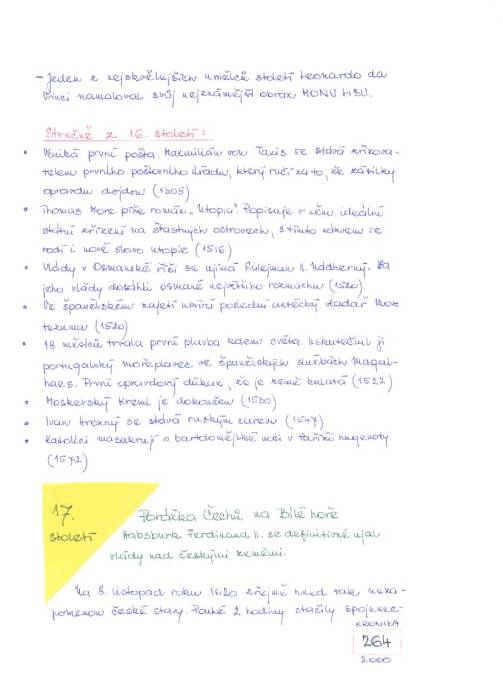 – Jeden z nejskvělejších umělců století Leonardo da
Vinci namaloval svůj nejznámější obraz MONU LISU.
Stručně z 16. století:
• Vzniká první pošta. Maxmilián von Taxis se stává zřizova-
telem prvního poštovního úřadu, který ručí za to, že zásilky
opravdu dojdou (1505)
• Thomas More píše román „Utopia". Popisuje v něm ideální
státní zřízení na šťastných ostrovech, s tímto názvem se
rodí i nové slovo utopie (1516)
• Vlády v Osmanské říši se ujímá Sülejman II. Nádherný. Za
jeho vlády dosáhli osmané největšího rozmachu (1520)
• Ve španělském zajetí umírá poslední aztécký vladař Mon-
tezuma (1520)
• 18 měsíců trvala první plavba kolem světa. Uskutečnil ji
portugalský mořeplavec ve španělských službách Magal-
haes. První opravdový důkaz, že je země kulatá (1522)
• Moskevský Kreml je dokončen (1530)
• Ivan Hrozný se stává ruským carem (1547)
• Katolíci masakrují o bartolomějské noci v Paříži hugenoty
(1572)
17.
století
Porážka Čechů na Bílé hoře
Habsburk Ferdinand II. se definitivně ujal
vlády nad českými zeměmi.
Na 8. listopad roku 1620 zřejmě hned tak neza-
pomenou české stavy. Pouhé 2 hodiny stačily spojenec-
KRONIKA
264
2000